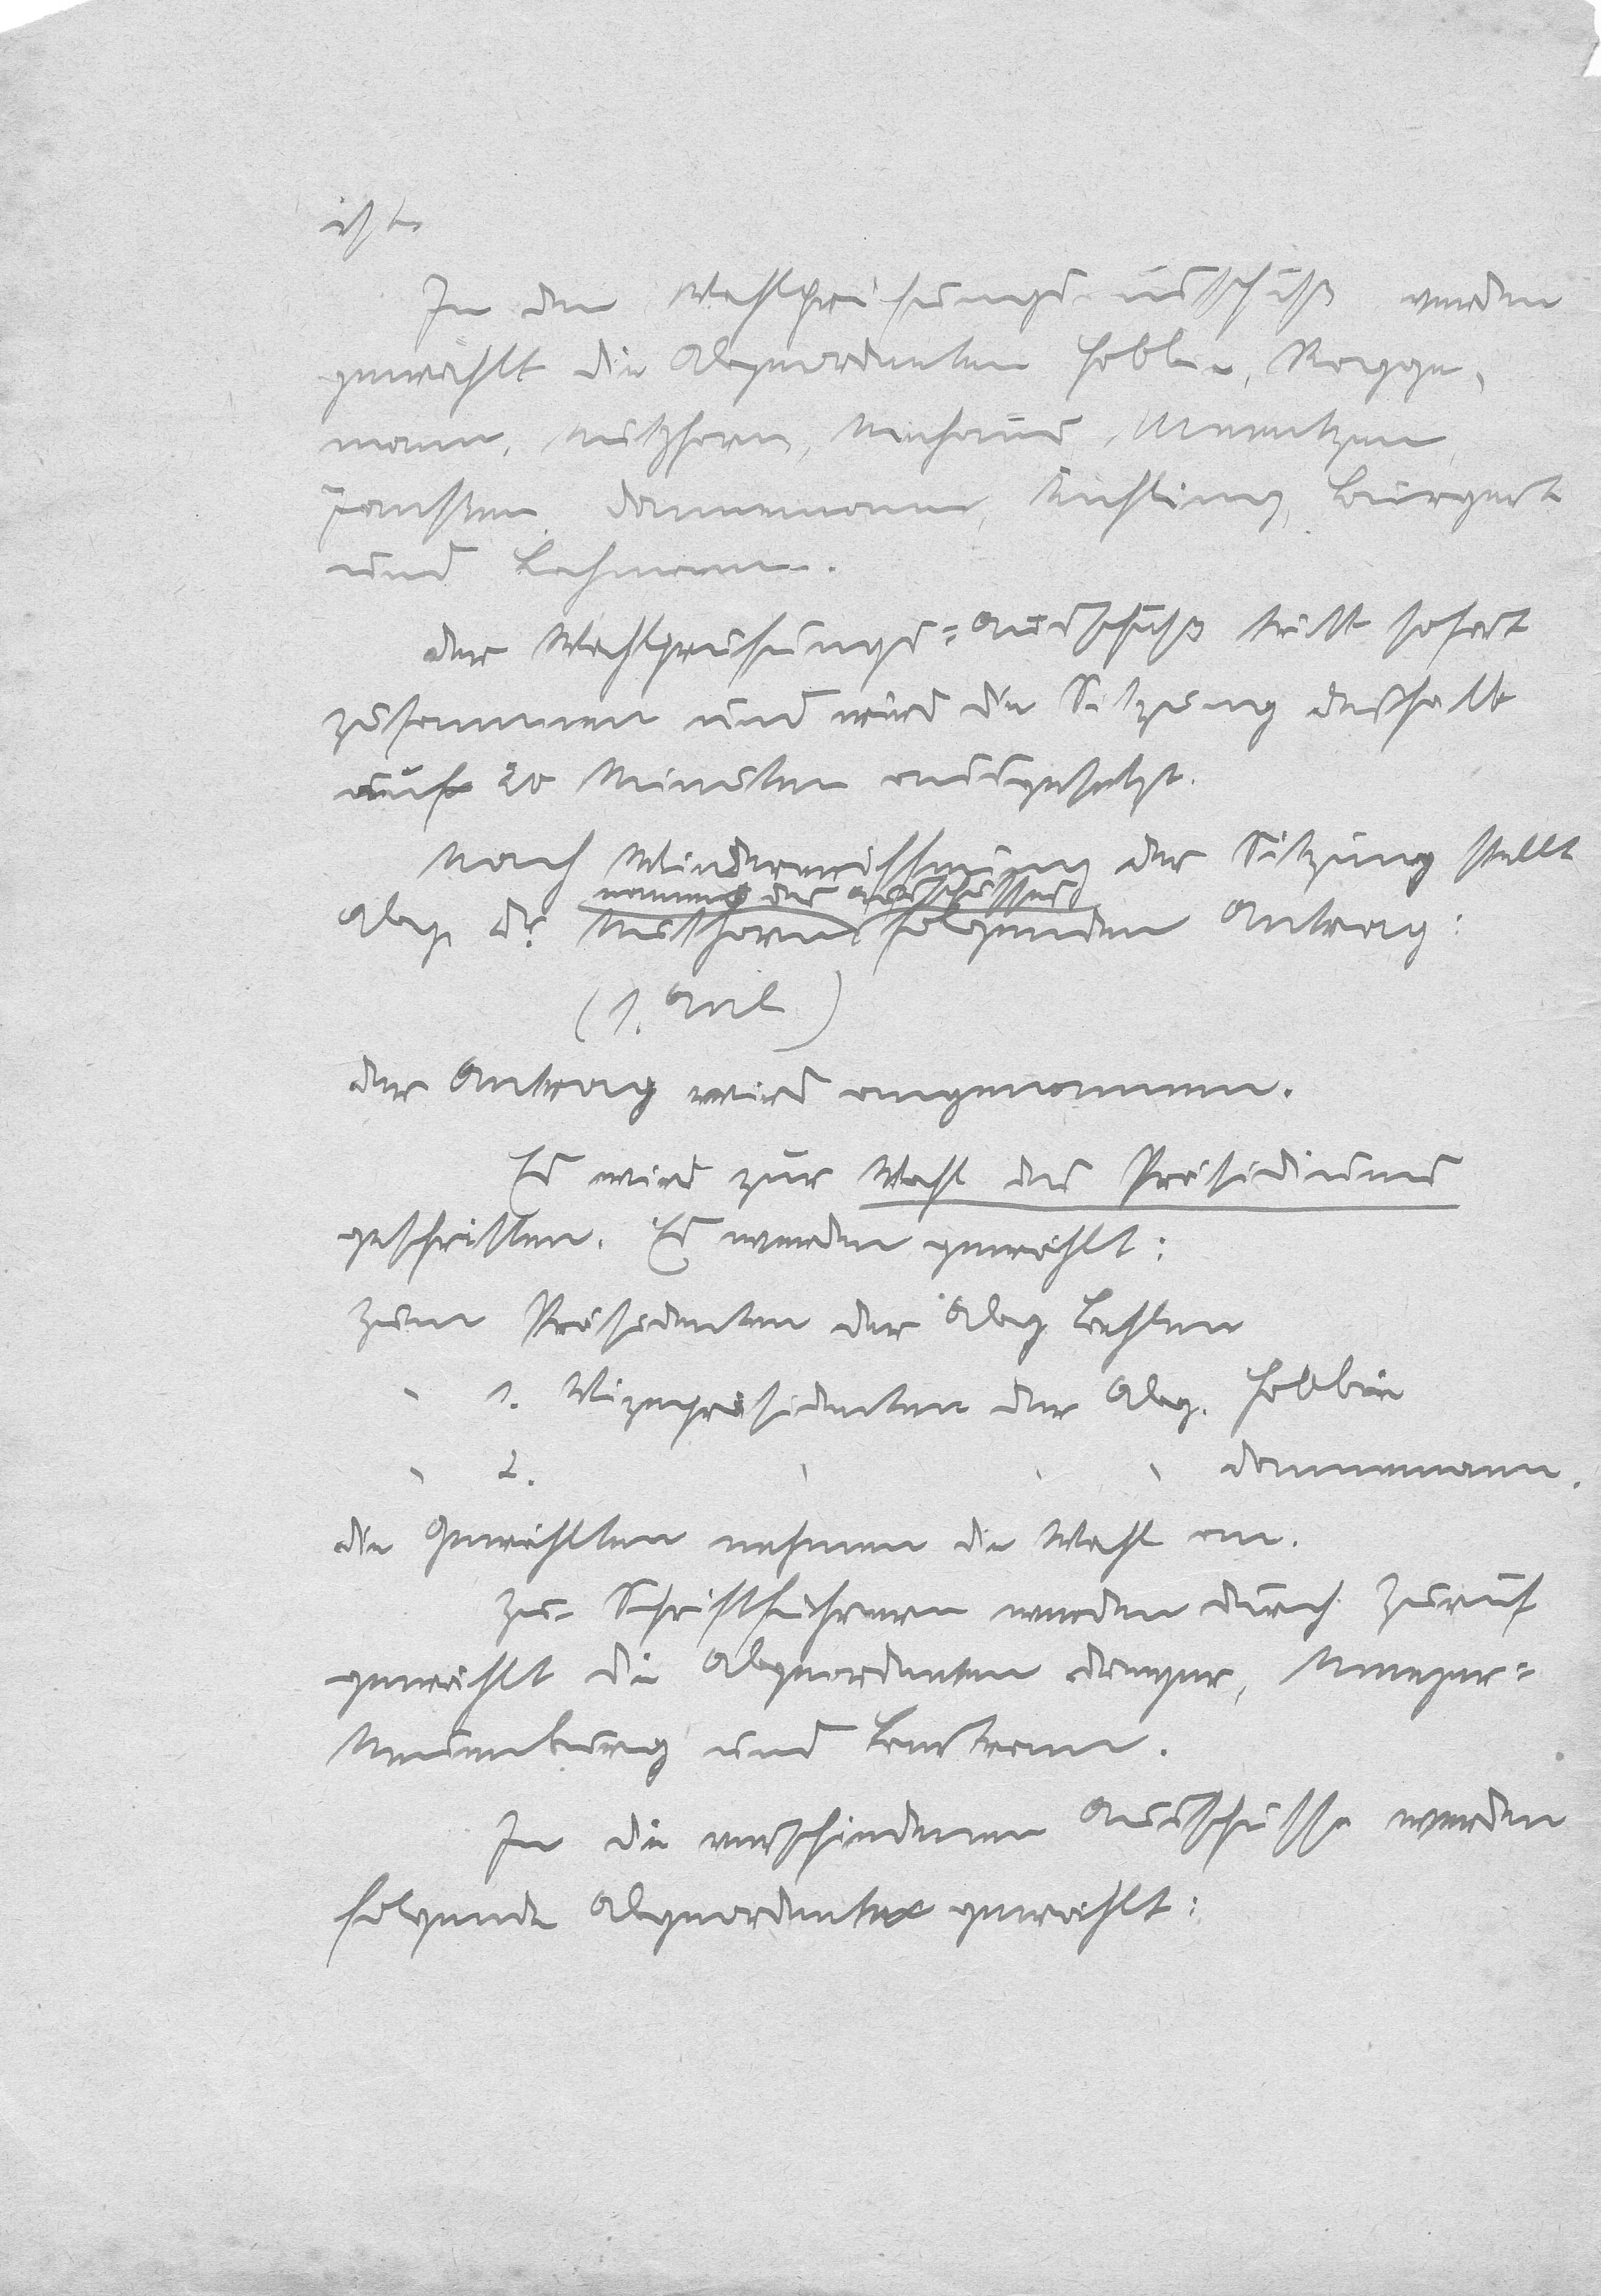 ist.
In den Wahlprüfungsausschuß werden
gewählt die Abgeordneten Hobbie, Rogge-
mann, Nutzhorn, Meyer,
Janssen, Dannemann, Kißling, Burgert
und Lahmann.
Der Wahlprüfungs-Ausschuß tritt sofort
zusammen und wird die Sitzung deshalb
auf 20 Minuten ausgesetzt.
Nach Wiedereröffnung der Sitzung stellt
namens des Ausschusses
Abg. Dr. Nutzhorn folgenden Antrag:
(1. Anl.)
Der Antrag wird angenommen.
Es wird zur Wahl des Präsidiums
geschritten. Es werden gewählt:
Zum Präsidenten der Abg.
" 1. Vizepräsidenten der Abg. Hobbie
" 2. " " " Dannemann.
Die Gewählten nehmen die Wahl an.
Zu Schriftführern werden durch Zuruf
gewählt die Abgeordneten Denger,
und
In die verschiedenen Ausschüsse werden
folgende Abgeordnete gewählt: